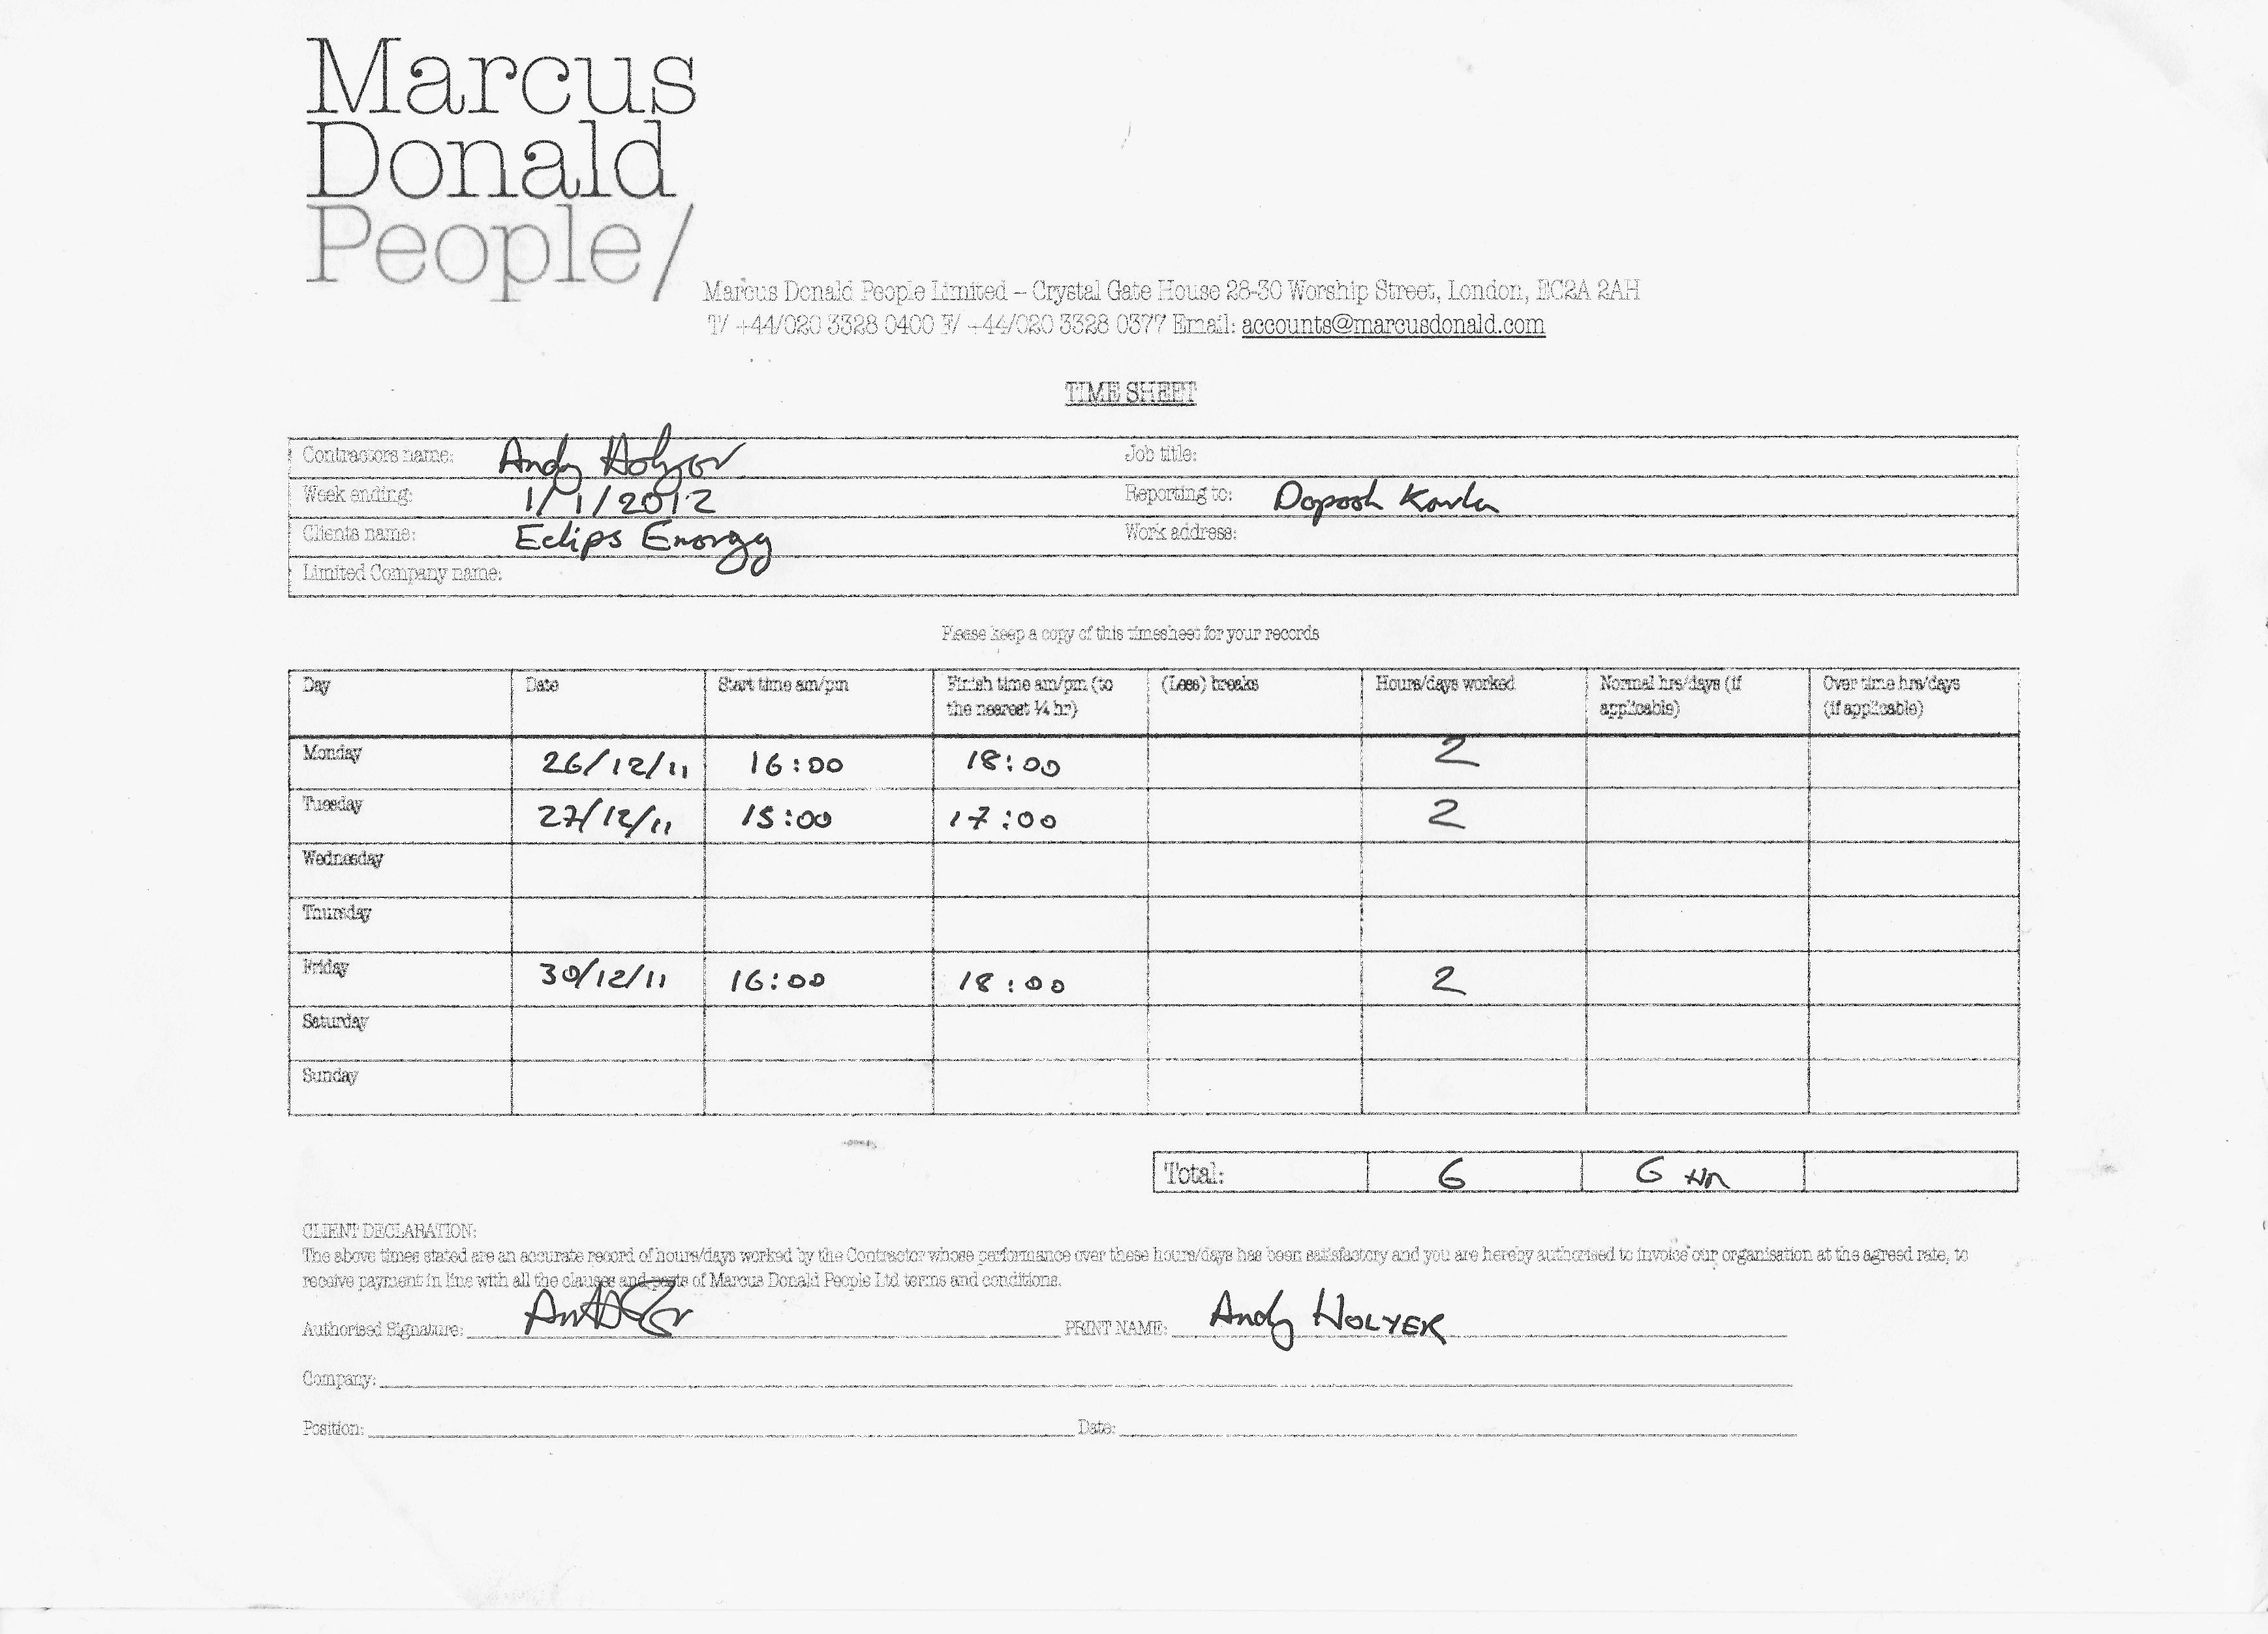 Marcus
Donald
People/
Marcus Donald People Limited – Crystal Gate House 28-30 Worship Street, London, EC2A 2AH
T/ +44/020 3328 0400 F/ +44/020 3328 0377 Email: accounts@marcusdonald.com
TIME SHEET
Contractors name: Andy Holyer Job title:
Week ending: 1/1/2012 Reporting to:
Clients name: Eclips Energy Work address:
Limited Company name:
Please keep a copy of this timesheet for your records
Day Date Start time am/pm Finish time am/pm (to the nearest ¼ hr) (Less) breaks Hours/days worked Normal hrs/days (if applicable) Over time hrs/days (if applicable)
Monday 26/12/11 16:00 18:00 2
Tuesday 27/12/11 15:00 17:00 2
Wednesday
Thursday
Friday 30/12/11 16:00 18:00 2
Saturday
Sunday
Total: 6 6 HR
CLIENT DECLARATION:
The above times stated are an accurate record of hours/days worked by the Contractor whose performance over these hours/days has been satisfactory and you are hereby authorised to invoice our organisation at the agreed rate, to
receive payment in line with all the clauses and parts of Marcus Donald People Ltd terms and conditions.
Authorised Signature: PRINT NAME: Andy HOLYER
Company:
Position: Date: